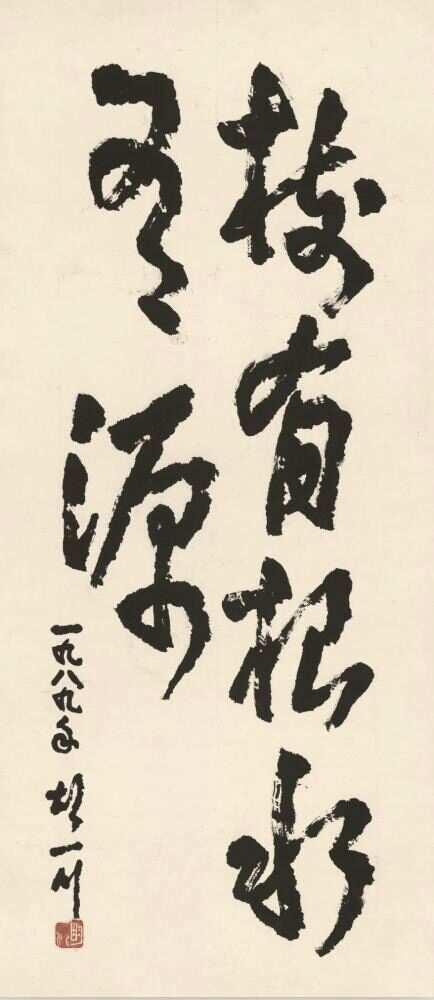 樹有根水
有源
一九八九年 胡一川